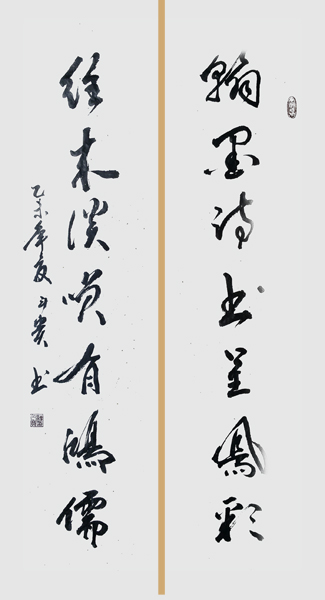 翰墨诗书呈鳳彩
往来谈笑有鸿儒
乙未年夏斗贵书